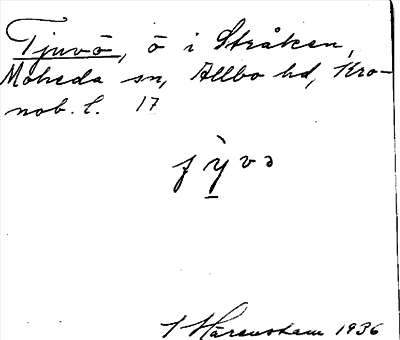 Tjuvö, ö i Stråken,
Moheda sn, Allbo hd, Kro-
nob. l. 17
1936